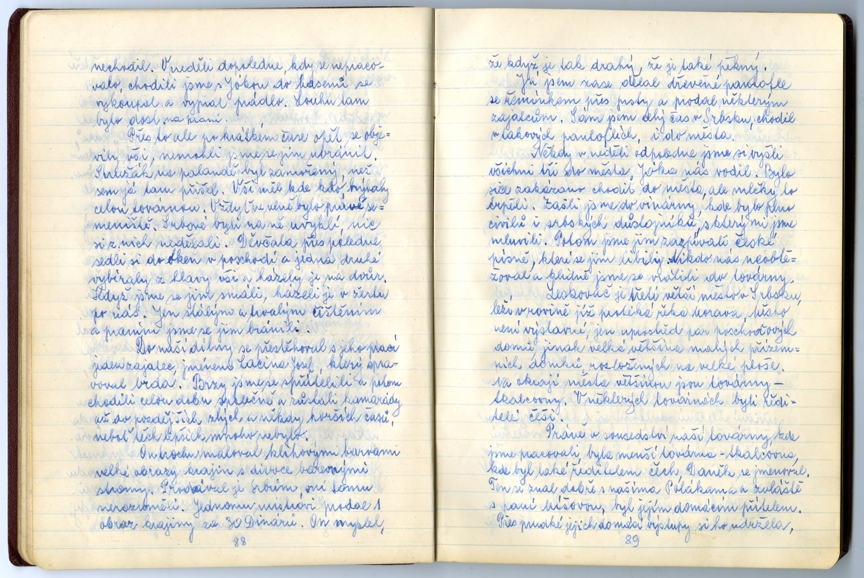 nechodil. V neděli dopoledne, kdy se nepraco-
valo, chodili jsme s Jókou do kasáren se
vykoupat a vyprat prádlo. Louhu tam
bylo dost, na praní.
Přes to ale po krátkém čase opět se obje-
vily vši, nemohli jsme se jim ubránit.
Strušák na palandě byl zamořený, než
jsem já tam přišel. Vši měl kde kdo, bývaly
celou továrnou. Vždy čtvrtěné bylo právě se-
meniště. Srbové byli na ně uvyklí, nic
si z nich nedělali. Děvčata, přes poledne,
sedli si do oken v poschodí a jedna druhé
vybíraly z hlavy vši a házely je na dvůr.
Když jsme se jim smáli, házeli je v žertu
po nás. Jen stálým a trvalým čištěním
a praním jsme se jim bránili.
Do naší dílny se přestěhoval s jeho prací
jeden zajatec, jménem Žačine Josef, který spra-
voval brda. Brzy jsme se spřátelili a potom
chodili celou dobu společně a zůstali kamarády
až do pozdějších, zlých a někdy horších časů,
neboť těch lepších mnoho nebylo.
On trochu maloval klihovými barvami
velké obrazy krajin s divoce barevnými
stromy. Prodával je Srbům, oni tomu
nerozuměli. Jednomu mistrovi prodal 1
obraz krajiny za 30 Dinárů. On myslel,
88
že když je tak drahý, že je také pěkný.
Já jsem zase dělal dřevěné pantofle
se řemínkem přes prsty a prodal některým
zajatcům. Sám jsem celý čas v Srbsku, chodil
v takových pantoflích, i do města.
Někdy v neděli odpoledne jsme si vyšli
všichni tři do města, Jóka nás vodil. Bylo
sice zakázáno chodit do města, ale měkty to
trpěli. Zašli jsme do vinárny, kde bylo plno
civilů i srbských důstojníků, s kterými jsme
mluvili. Potom jsme jim zazpívali české
písně, které se jim líbily. Nikdo nás neobtě-
žoval a klidně jsme se vrátili do továrny.
Leskovac je třetí větší město v Srbsku,
leží v rovině jíž protéká řeka Morava. Město
není výstavné, jen uprostřed pár poschoďových
domů, jinak velká většina malých přízem-
ních, domků, rozložených na velké ploše.
Na okraji města většinou jsou továrny -
tkalcovny. V některých továrnách byli ředi-
telé Češi.
Právě v sousedství naší továrny, kde
jsme pracovali, byla menší továrna - tkalcovna,
kde byl také ředitelem Čech, Daněk se jmenoval.
Ten si znal dobře s našima Polákama a zvláště
s paní Líšovou, byl jejím domácím přítelem.
Přes prudké jejich domácí výstupy si ho udržela,
89